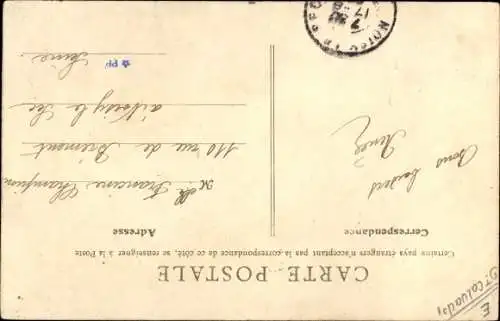 CARTE POSTALE
Certains pays étrangers n'acceptant pas la correspondance de ce côté, se renseigner à la Poste
Correspondance
Adresse
Bons baisers
Melle Francine Champion
110 rue de Brément
à Noisy le Sec
Seine
NOISY LE SEC
PF
E
Dt Calvados